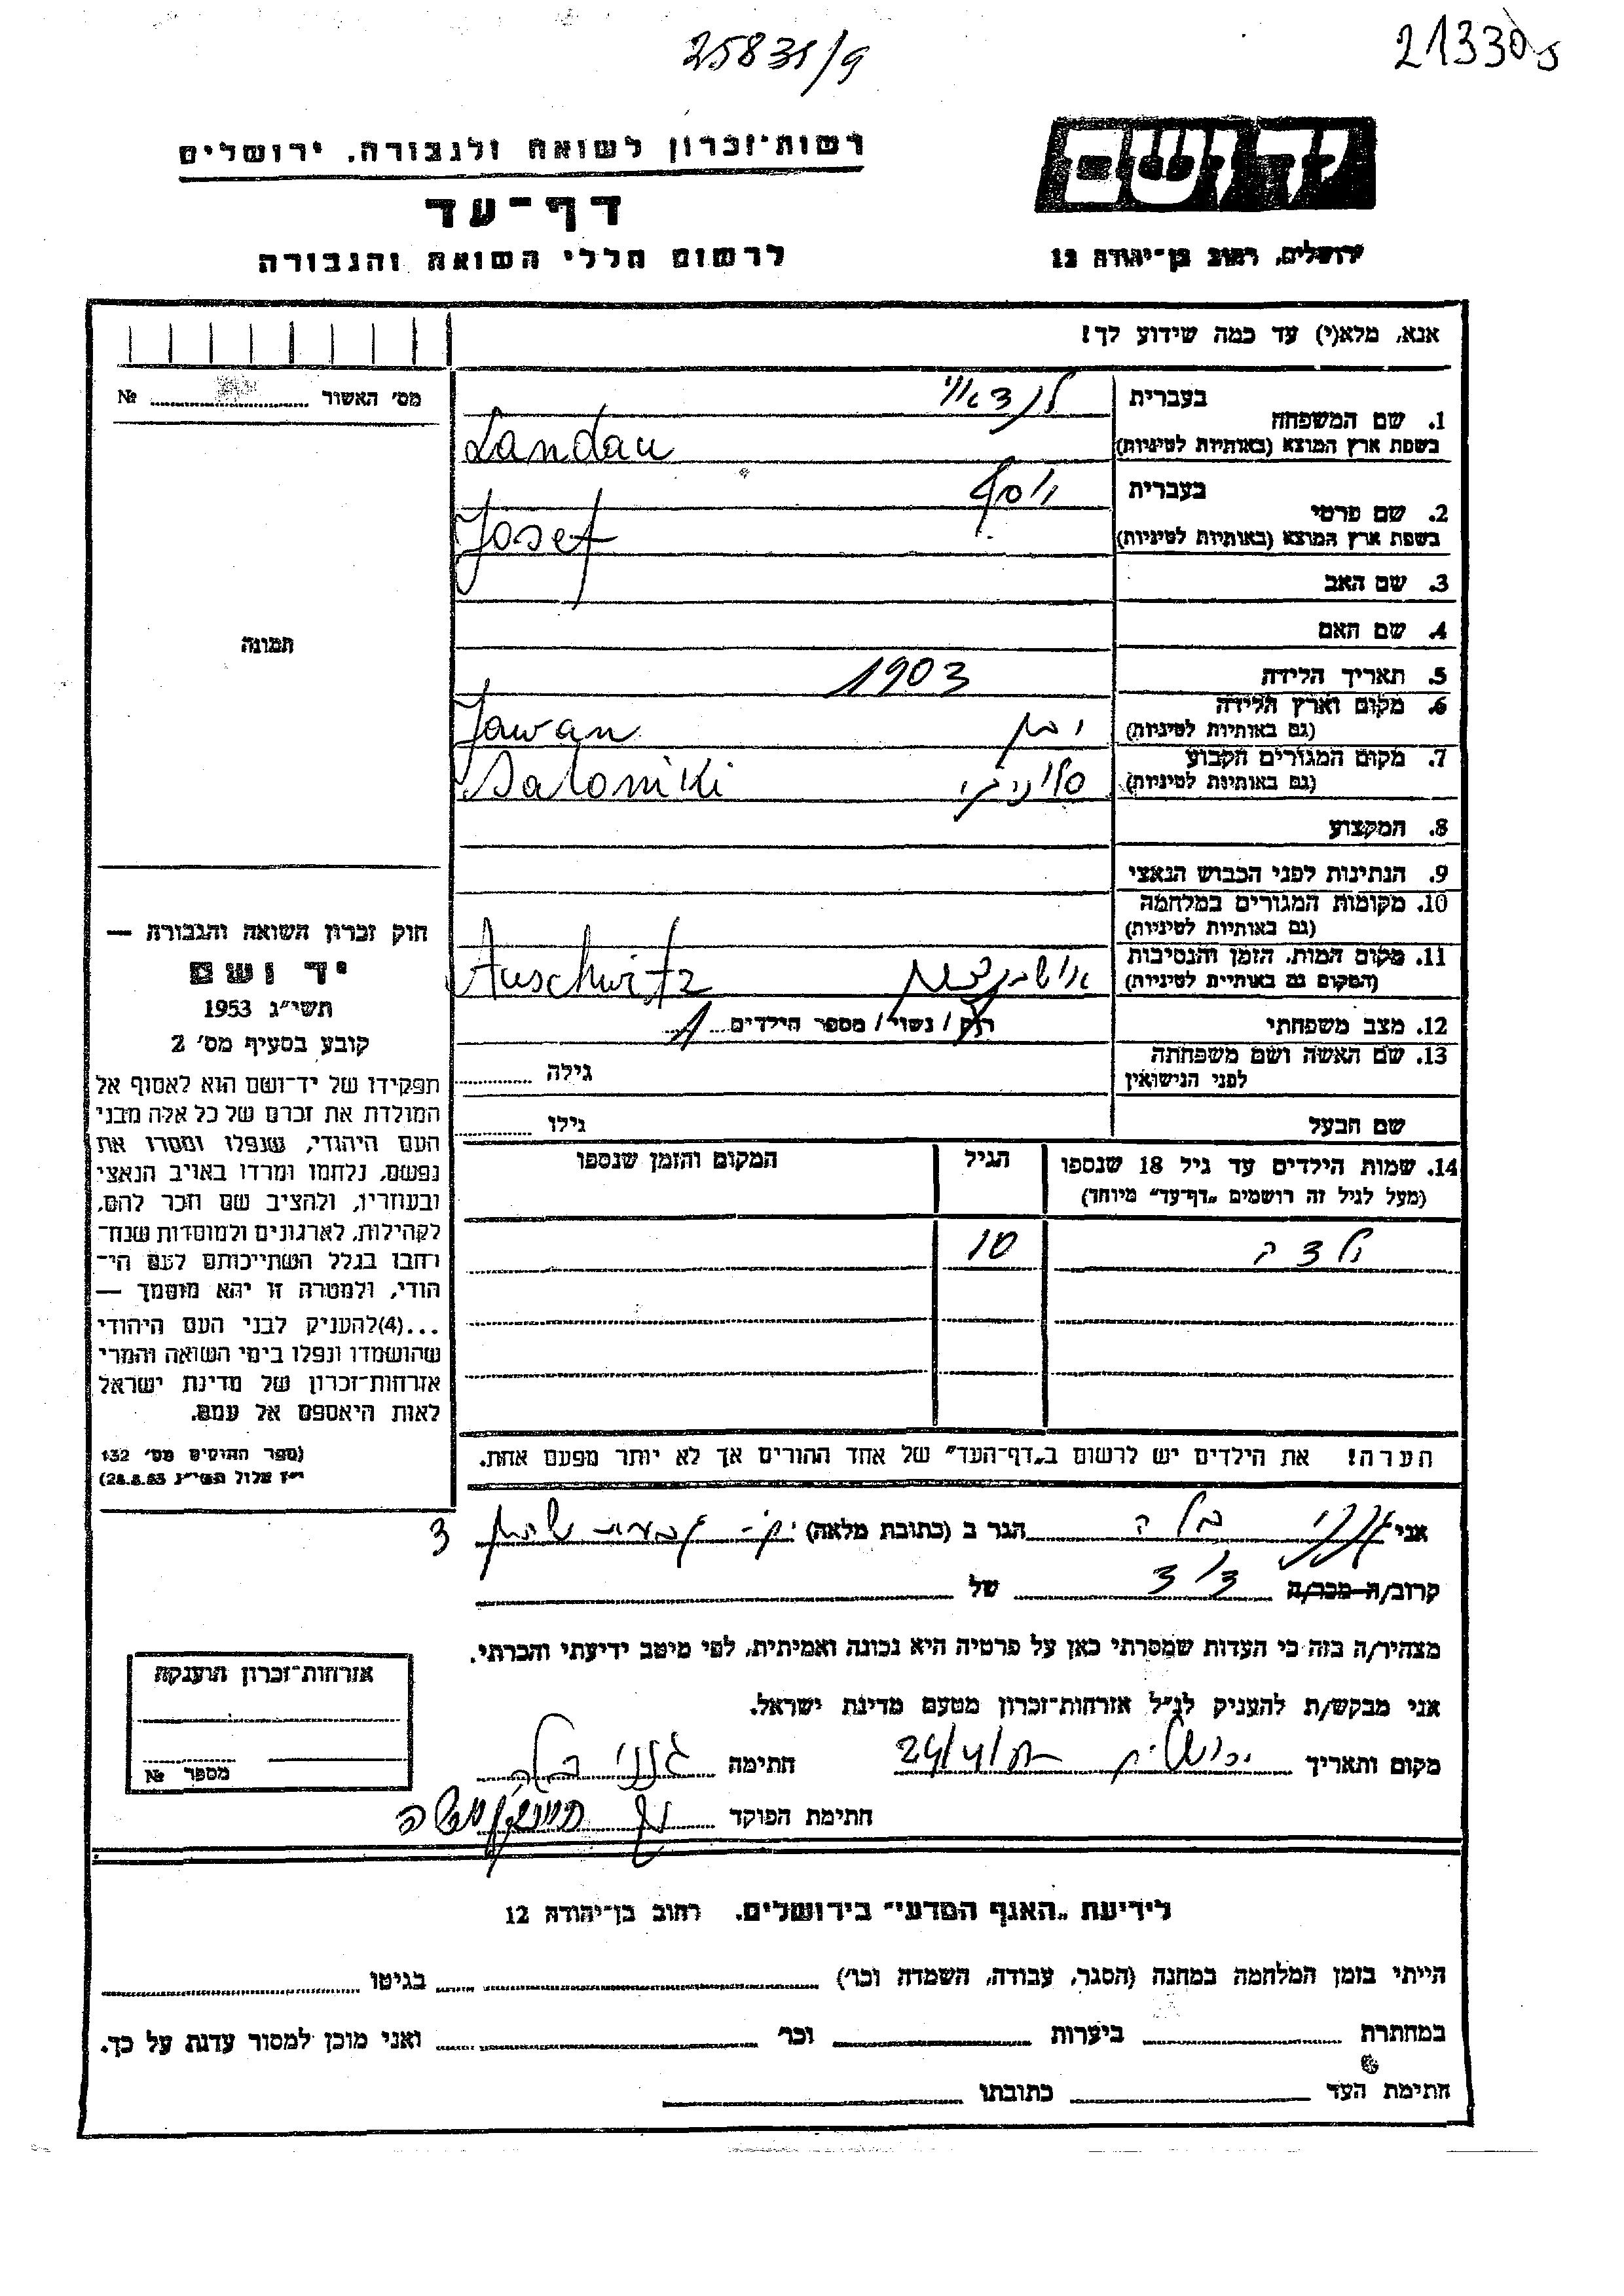 25831/9
213305
רשות-זכרון לשואה ולגבורה, ירושלים
יד ושם
דף-עד
לרשום חללי השואה והגבורה
ירושלים, רחוב בן-יהודה 12
אנא, מלא(י) עד כמה שידוע לך!
מס' האשור № 
1. שם המשפחה בעברית לנדאוי
בשפת ארץ המוצא (באותיות לטיניות) Landau
2. שם פרטי בעברית יוסף
בשפת ארץ המוצא (באותיות לטיניות) Josef
3. שם האב
4. שם האם
תמונה
5. תאריך הלידה 1903
6. מקום וארץ הלידה (גם באותיות לטיניות) יון Jawan
7. מקום המגורים הקבוע (גם באותיות לטיניות) סלוניקי Saloniki
8. המקצוע
9. הנתינות לפני הכבוש הנאצי
10. מקומות המגורים במלחמה (גם באותיות לטיניות)
11. מקום המות, הזמן והנסיבות (המקום גם באותיות לטיניות) Auschwitz
12. מצב משפחתי רוק / נשוי / מספר הילדים 1
13. שם האשה ושם משפחתה לפני הנישואין גילה
שם הבעל גילו
14. שמות הילדים עד גיל 18 שנספו (מעל לגיל זה רושמים "דף-עד" מיוחד) הגיל המקום והזמן שנספו
ילדה 10
הערה! את הילדים יש לרשום ב"דף-העד" של אחד ההורים אך לא יותר מפעם אחת.
חוק זכרון השואה והגבורה —
יד ושם
תשי"ג 1953
קובע בסעיף מס' 2
תפקידו של יד-ושם הוא לאסוף אל
המולדת את זכרם של כל אלה מבני
העם היהודי, שנפלו ומסרו את
נפשם, נלחמו ומרדו באויב הנאצי
ובעוזריו, ולהציב שם וזכר להם,
לקהילות, לארגונים ולמוסדות שנח-
רבו בגלל השתייכותם לעם הי-
הודי, ולמטרה זו יהא מוסמך —
...(4) להעניק לבני העם היהודי
שהושמדו ונפלו בימי השואה והמרי
אזרחות-זכרון של מדינת ישראל
לאות היאספם אל עמם.
(ספר החוקים מס' 132
י"ז אלול תשי"ג 28.8.53)
אני בלה הגר ב (כתובת מלאה) 3
קרוב/ה מכר/ה דוד של
מצהיר/ה בזה כי העדות שמסרתי כאן על פרטיה היא נכונה ואמיתית, לפי מיטב ידיעתי והכרתי.
אני מבקש/ת להעניק לנ"ל אזרחות-זכרון מטעם מדינת ישראל.
מקום ותאריך ירושלים 24/4/ חתימה בלה
חתימת הפוקד
אזרחות-זכרון הוענקה
מספר №
לידיעת "האגף המדעי" בירושלים, רחוב בן-יהודה 12
הייתי בזמן המלחמה במחנה (הסגר, עבודה, השמדה וכו') בגיטו
במחתרת ביערות וכו' ואני מוכן למסור עדות על כך.
חתימת העד כתובתו